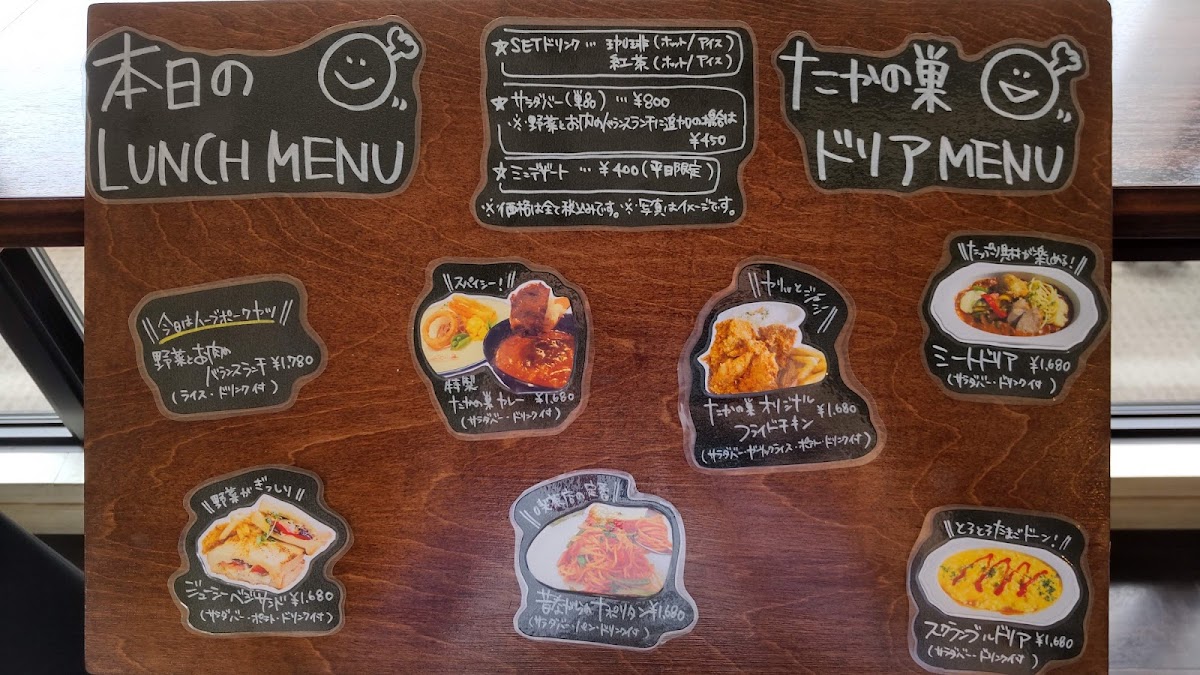 本日の
LUNCH MENU
★SETドリンク… 珈琲(ホット/アイス)
紅茶(ホット/アイス)
★サラダバー(単品)…¥800
※野菜とお肉のバランスランチに追加の場合は
¥450
★ミニデザート…¥400(平日限定)
※価格は全て税込みです。※写真はイメージです。
たかの巣
ドリアMENU
今日はハーブポークカツ
野菜とお肉の
バランスランチ ¥1,780
(ライス・ドリンク付)
スパイシー!
特製
たかの巣カレー ¥1,680
(サラダバー・ドリンク付)
カリッとジューシー
たかの巣オリジナル
フライドチキン ¥1,680
(サラダバー・ガーリックライス・ポテト・ドリンク付)
たっぷり具材が楽しめる!
ミートドリア ¥1,680
(サラダバー・ドリンク付)
野菜がぎっしり
ジューシーベジサンド ¥1,680
(サラダバー・ポテト・ドリンク付)
喫茶店の定番
昔ながらのナポリタン ¥1,680
(サラダバー・パン・ドリンク付)
とろとろたまごドーン!
スクランブルドリア ¥1,680
(サラダバー・ドリンク付)